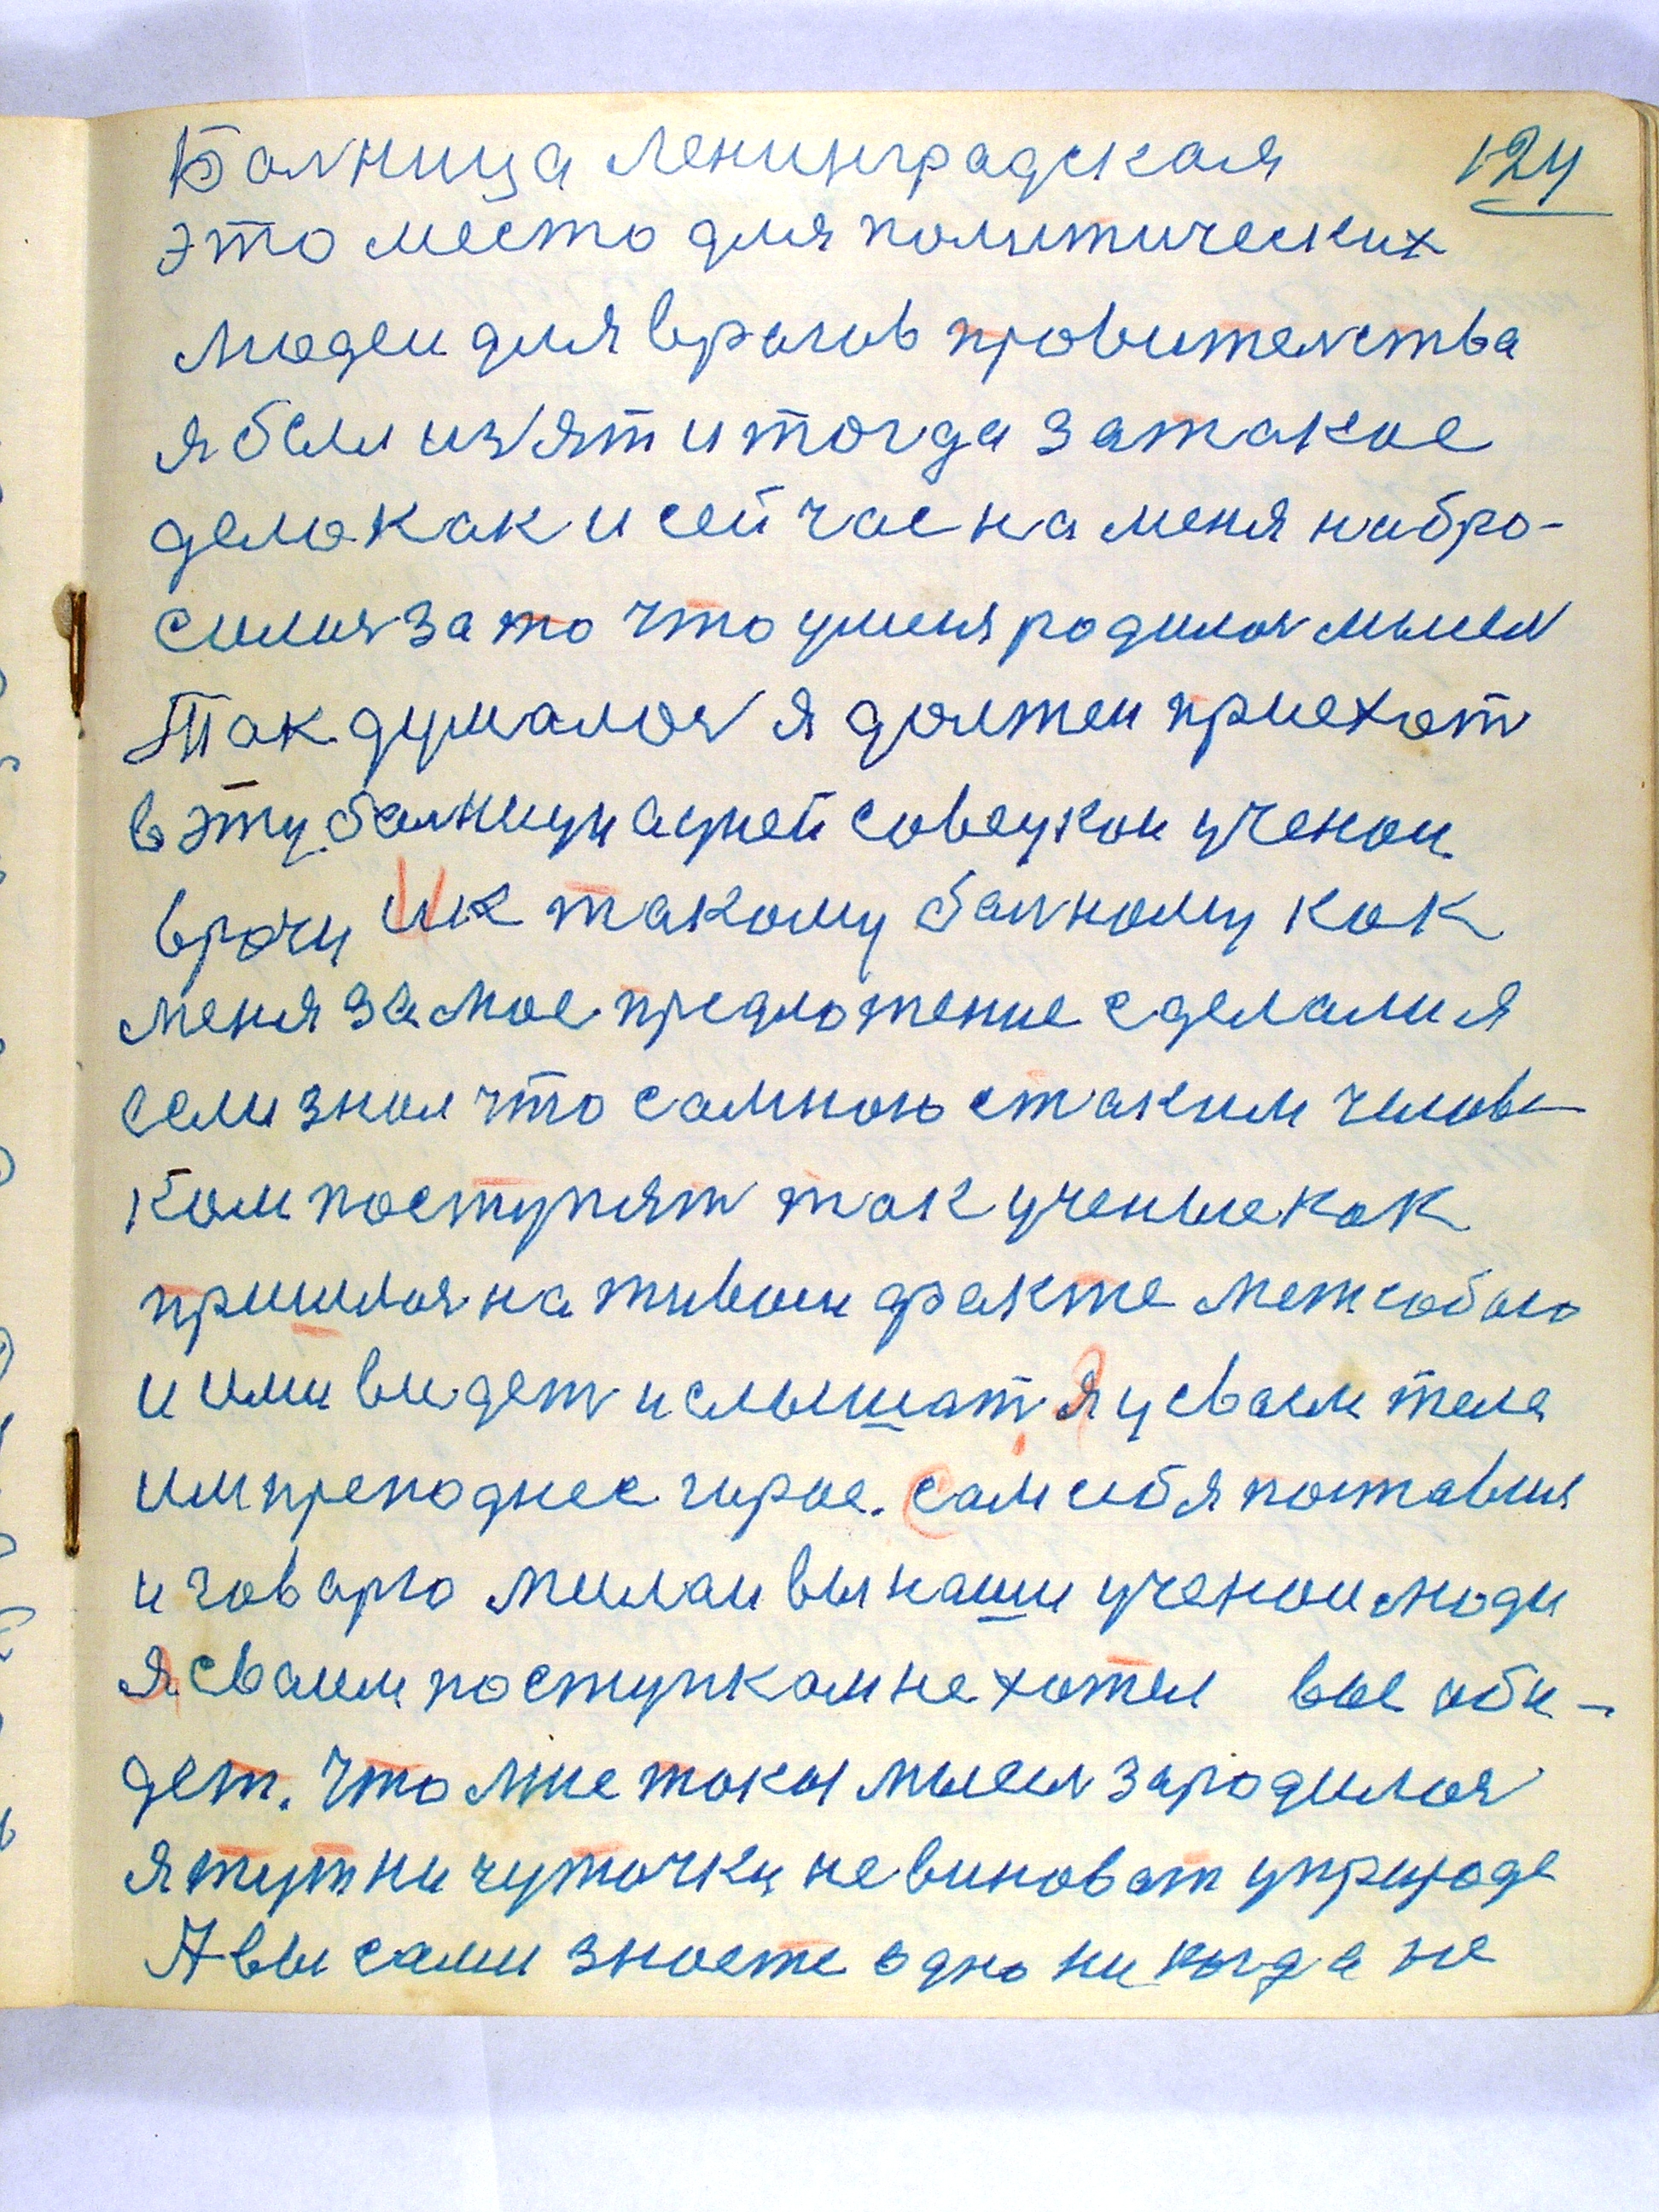 Болница Ленинградская 124
это место для политических
людеи для врагов провителства
я был изят и тогда за такое
дело как и сейчас на меня набро-
силис за то что у меня родилас мысл
Так думалос я должен приехат
в эту болницу а у ней совецкои ученои
врачи и к такому болному как
меня за мое предложение сделали я
если знал что со мною с таким челове
ком поступят так ученые как
пришлос на живом факте меж собою
и ими видет и слышат. Я у своем теле
им преподнес гирое. Сам себя поставил
и говарю милаи вы наши ученои люди
Я сваим поступкам не хотел вас оби-
дет. Что мне такы мысли зародилос
я тут ни чуточки не виноват у природе
А вы сами знаете одно никогда не